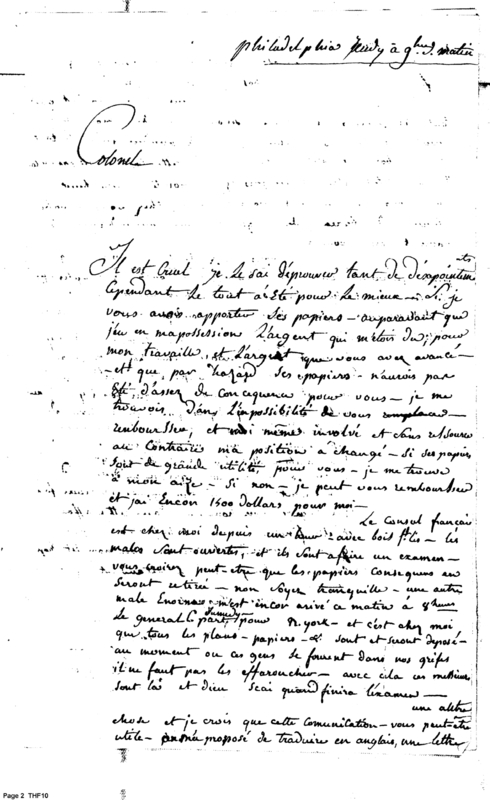 philadelphia Jeudy à 9 hres matin
Colonel
Il est Cruel je le sai déprouver tant de désapointem ts
Cependant le tout a Eté pour le mieux — Si je
vous avois apporter ses papiers — auparavant que
j'eu en ma possession L'argent qui m'étoit du; pour
mon travaille, et L'argent que vous avez avancé —
— et que, par hazard ses papiers — n'auroit pas
Eté d'assez de Consequence pour vous — je me
trouvois Dans L'impossibilité de vous
rembourssee, et moi même involvé et sans ressource
au Contraire ma position a changé — Si ses papiers
sont de grande utilité pour vous — je me trouve
à mon aise — Si non — je peut vous rembourssee
et jai Encor 1500 dollars pour moi —
Le Consul français
est chez moi depuis une heure avec — les
males sont ouvertes, et ils sont a faire un examen —
vous croirez peut-être que les papiers Consequens en
seront retiré — non soyez tranquille — une autre
male Enorme m'est encor arivé ce matin à 8 heures
Le general part pour N. york — et c'est chez moi
que tous les plans — papiers — & sont et seront deposé —
au moment ou ces gens se fourent dans nos grifes
il ne faut pas les effaroucher — avec cela ces messieurs
sont là et dieu scai quand finira l'examen —
une autre
chose et je crois que cette Comunication — vous peut-être
utile — on m'a proposé de traduire en anglais, une lettre
Page 2 THF10